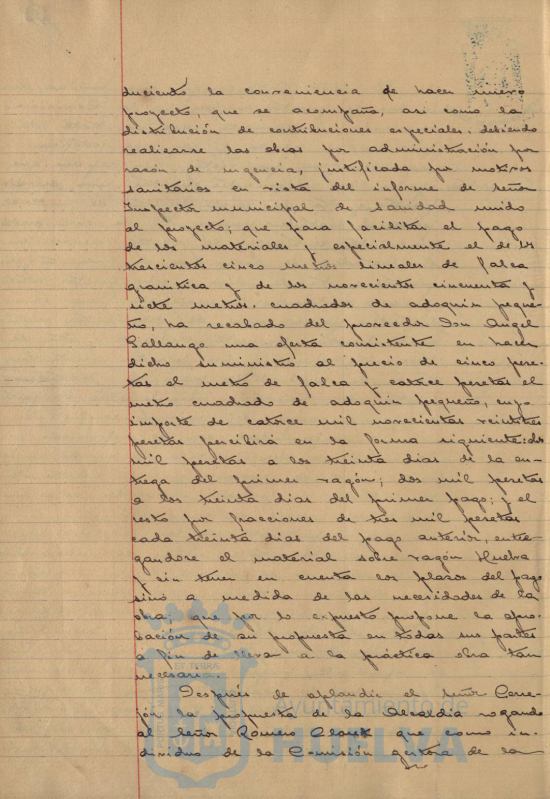 duciendo la conveniencia de hacer nuevo
proyecto, que se acompaña, asi como la
distribución de contribuciones especiales, debiendo
realizarse las obras por administración por
razón de urgencia, justificada por motivos
sanitarios en vista del informe de señor
Inspector municipal de Sanidad unido
al proyecto; que para facilitar el pago
de los materiales y especialmente el de los
trescientos cinco metros lineales de falca
granitica y de los novecientos cincuenta y
siete metros cuadrados de adoquin peque-
ño, ha recabado del proveedor Don Angel
Gallango una oferta consistente en hacer
dicho suministro al precio de cinco pese-
tas el metro de falca y catorce pesetas el
metro cuadrado de adoquin pequeño, cuyo
importe de catorce mil novecientas veintitres
pesetas percibirá en la forma siguiente: dos
mil pesetas a los treinta dias de la en-
trega del primer vagón; dos mil pesetas
a los treinta dias del primer pago; y el
resto por fracciones de tres mil pesetas
cada treinta dias del pago anterior, entre-
gandose el material sobre vagón Huelva
y sin tener en cuenta los plazos del pago
sino a medida de las necesidades de la
obra; que por lo expuesto propone la apro-
bación de su propuesta en todas sus partes
a fin de llevar a la práctica obra tan
necesaria.
Después de aplaudir el señor Corre-
jón la propuesta de la Alcaldia rogando
al señor Romero Clauk que como in-
dividuo de la Comisión gestora de la
Ayuntamiento de
HUELVA